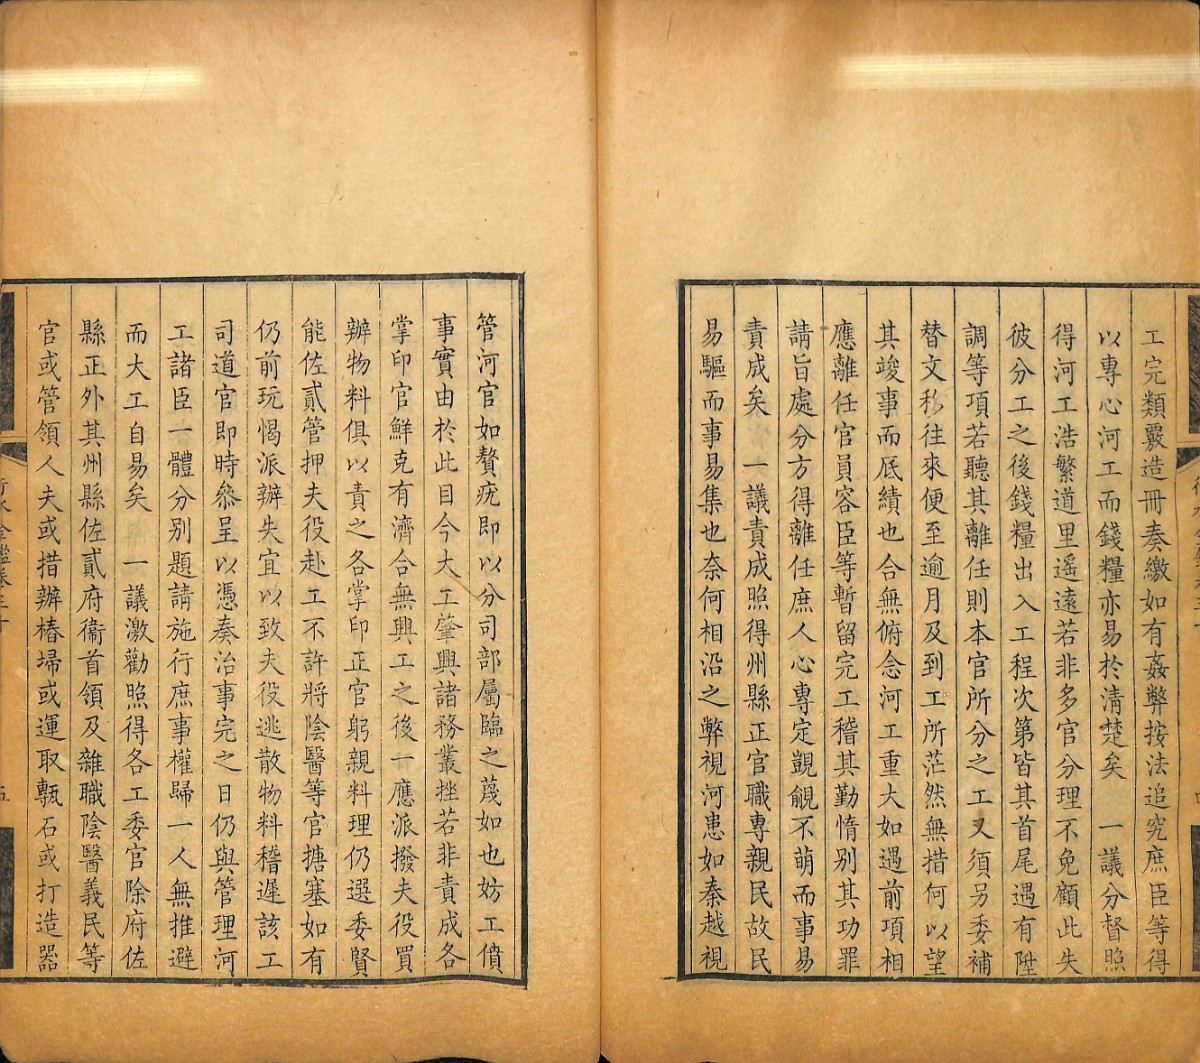 工完類覈造冊奏繳如有姦弊按法追究庶臣等得
以專心河工而錢糧亦易於清楚矣　一議分督照
得河工浩繁道里遥遠若非多官分理不免顧此失
彼分工之後錢糧出入工程次第皆其首尾遇有陞
調等項若聽其離任則本官所分之工又須另委補
替文移往來便至逾月及到工所茫然無措何以望
其竣事而厎績也合無俯念河工重大如遇前項相
應離任官員容臣等暫留完工稽其勤惰別其功罪
請旨處分方得離任庶人心專定覬覦不萌而事易
責成矣　一議責成照得州縣正官職專親民故民
易驅而事易集也奈何相沿之弊視河患如秦越視
管河官如贅疣即以分司部屬臨之蔑如也妨工僨
事實由於此目今大工肇興諸務叢挫若非責成各
掌印官鮮克有濟合無興工之後一應派撥夫役買
辦物料俱以責之各掌印正官躬親料理仍選委賢
能佐貳管押夫役赴工不許將陰醫等官搪塞如有
仍前玩愒派辦失宜以致夫役逃散物料稽遲該工
司道官即時叅呈以憑奏治事完之日仍與管理河
工諸臣一體分別題請施行庶事權歸一人無推避
而大工自易矣　一議激勸照得各工委官除府佐
縣正外其州縣佐貳府衞首領及雜職陰醫義民等
官或管領人夫或措辦樁埽或運取甎石或打造器
五